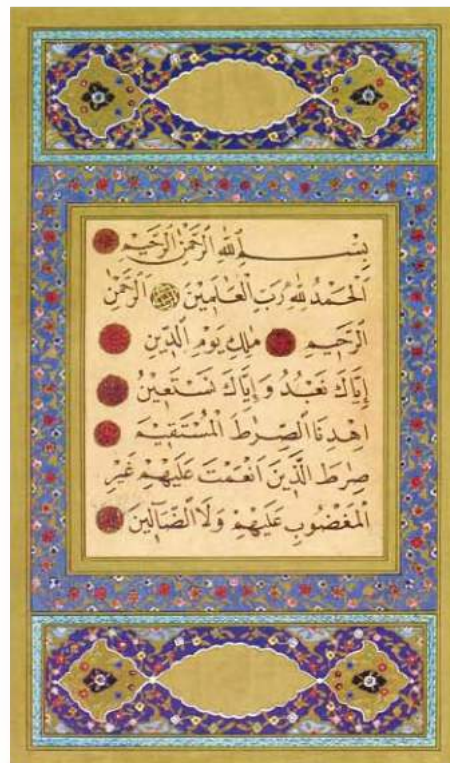 بِسْمِ اللّٰهِ الرَّحْمٰنِ الرَّحٖيمِ
اَلْحَمْدُ لِلّٰهِ رَبِّ الْعَالَمٖينَ اَلرَّحْمٰنِ
الرَّحٖيمِ مٰلِكِ يَوْمِ الدّٖينِ
اِيَّاكَ نَعْبُدُ وَاِيَّاكَ نَسْتَعٖينُ
اِهْدِنَا الصِّرَاطَ الْمُسْتَقٖيمَ
صِرَاطَ الَّذٖينَ اَنْعَمْتَ عَلَيْهِمْ غَيْرِ
الْمَغْضُوبِ عَلَيْهِمْ وَلَا الضَّٓالّٖينَ